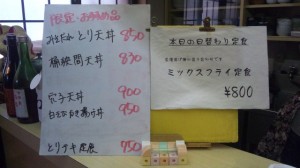 限定・お勧め品
とり天丼 850
桶狭間天丼 830
穴子天丼 900
かき揚げ丼 950
とりチキ定食 750
本日の日替わり定食
ミックスフライ定食
¥800